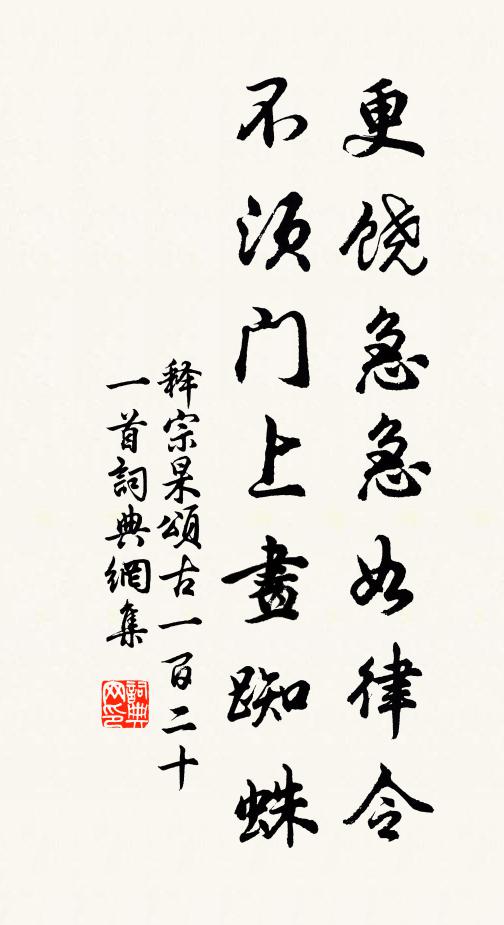 更饶急急如律令
不须门上畫踟蛛
释宗杲頌古一百二十
一首詞典網集
詞典网印